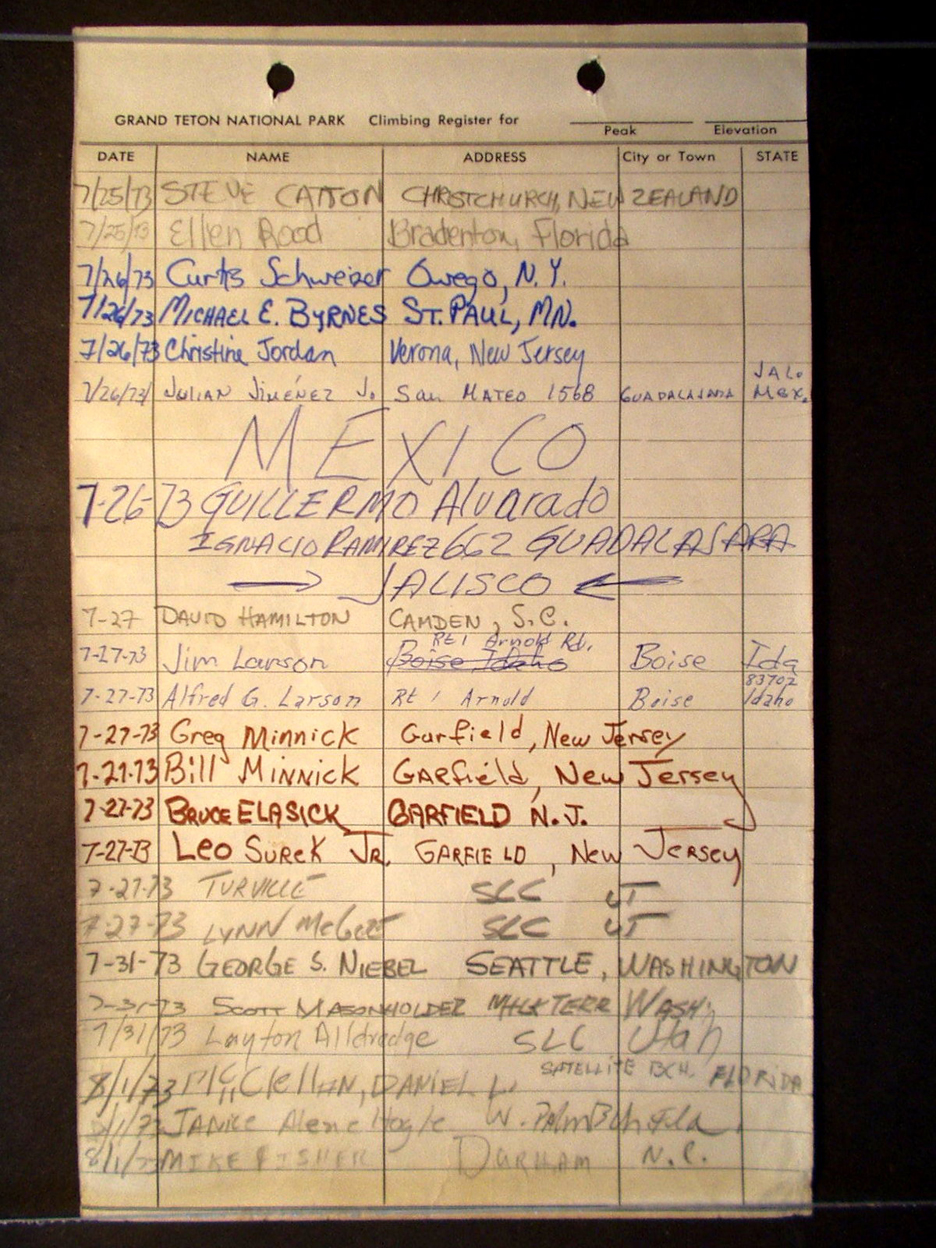 GRAND TETON NATIONAL PARK Climbing Register for
Peak Elevation
DATE NAME ADDRESS City or Town STATE
7/25/73 STEVE CATTON CHRISTCHURCH, NEW ZEALAND
7/25/73 Ellen Rood Bradenton, Florida
7/26/73 Curtis Schweizer Owego, N.Y.
7/26/73 MICHAEL E. BYRNES ST. PAUL, MN.
7/26/73 Christine Jordan Verona, New Jersey
JAL.
7/26/73 JULIAN JIMÉNEZ J. San MATEO 1568 GUADALAJARA Mex.
MEXICO
7-26-73 GUILLERMO Alvarado
IGNACIO RAMIREZ 662 GUADALAJARA
JALISCO
7-27 DAVID HAMILTON CAMDEN, S.C.
Rt 1 Arnold Rd.
7-27-73 Jim Larson Boise Idaho Boise Ida
83702
7-27-73 Alfred G. Larson Rt 1 Arnold Boise Idaho
7-27-73 Greg Minnick Garfield, New Jersey
7-27-73 Bill MINNICK GARfield, New Jersey
7-27-73 BRUCE ELASICK GARFIELD N.J.
7-27-73 Leo SureK JR. GARFIELD, New Jersey
7-27-73 TURVILLE SLC UT
7-27-73 LYNN SLC UT
7-31-73 GEORGE S. NIEBEL SEATTLE, WASHINGTON
7-31-73 SCOTT MASONHOLDER TERR WASH.
7/31/73 Layton Alldredge SLC Utah
SATELLITE BCH. FLORIDA
8/1/73 McClellAN, DANIEL L.
8/1/73 JANICE Alene Hogle W. Palm Bch Fla.
8/1/73 MIKE FISHER DURHAM N.C.